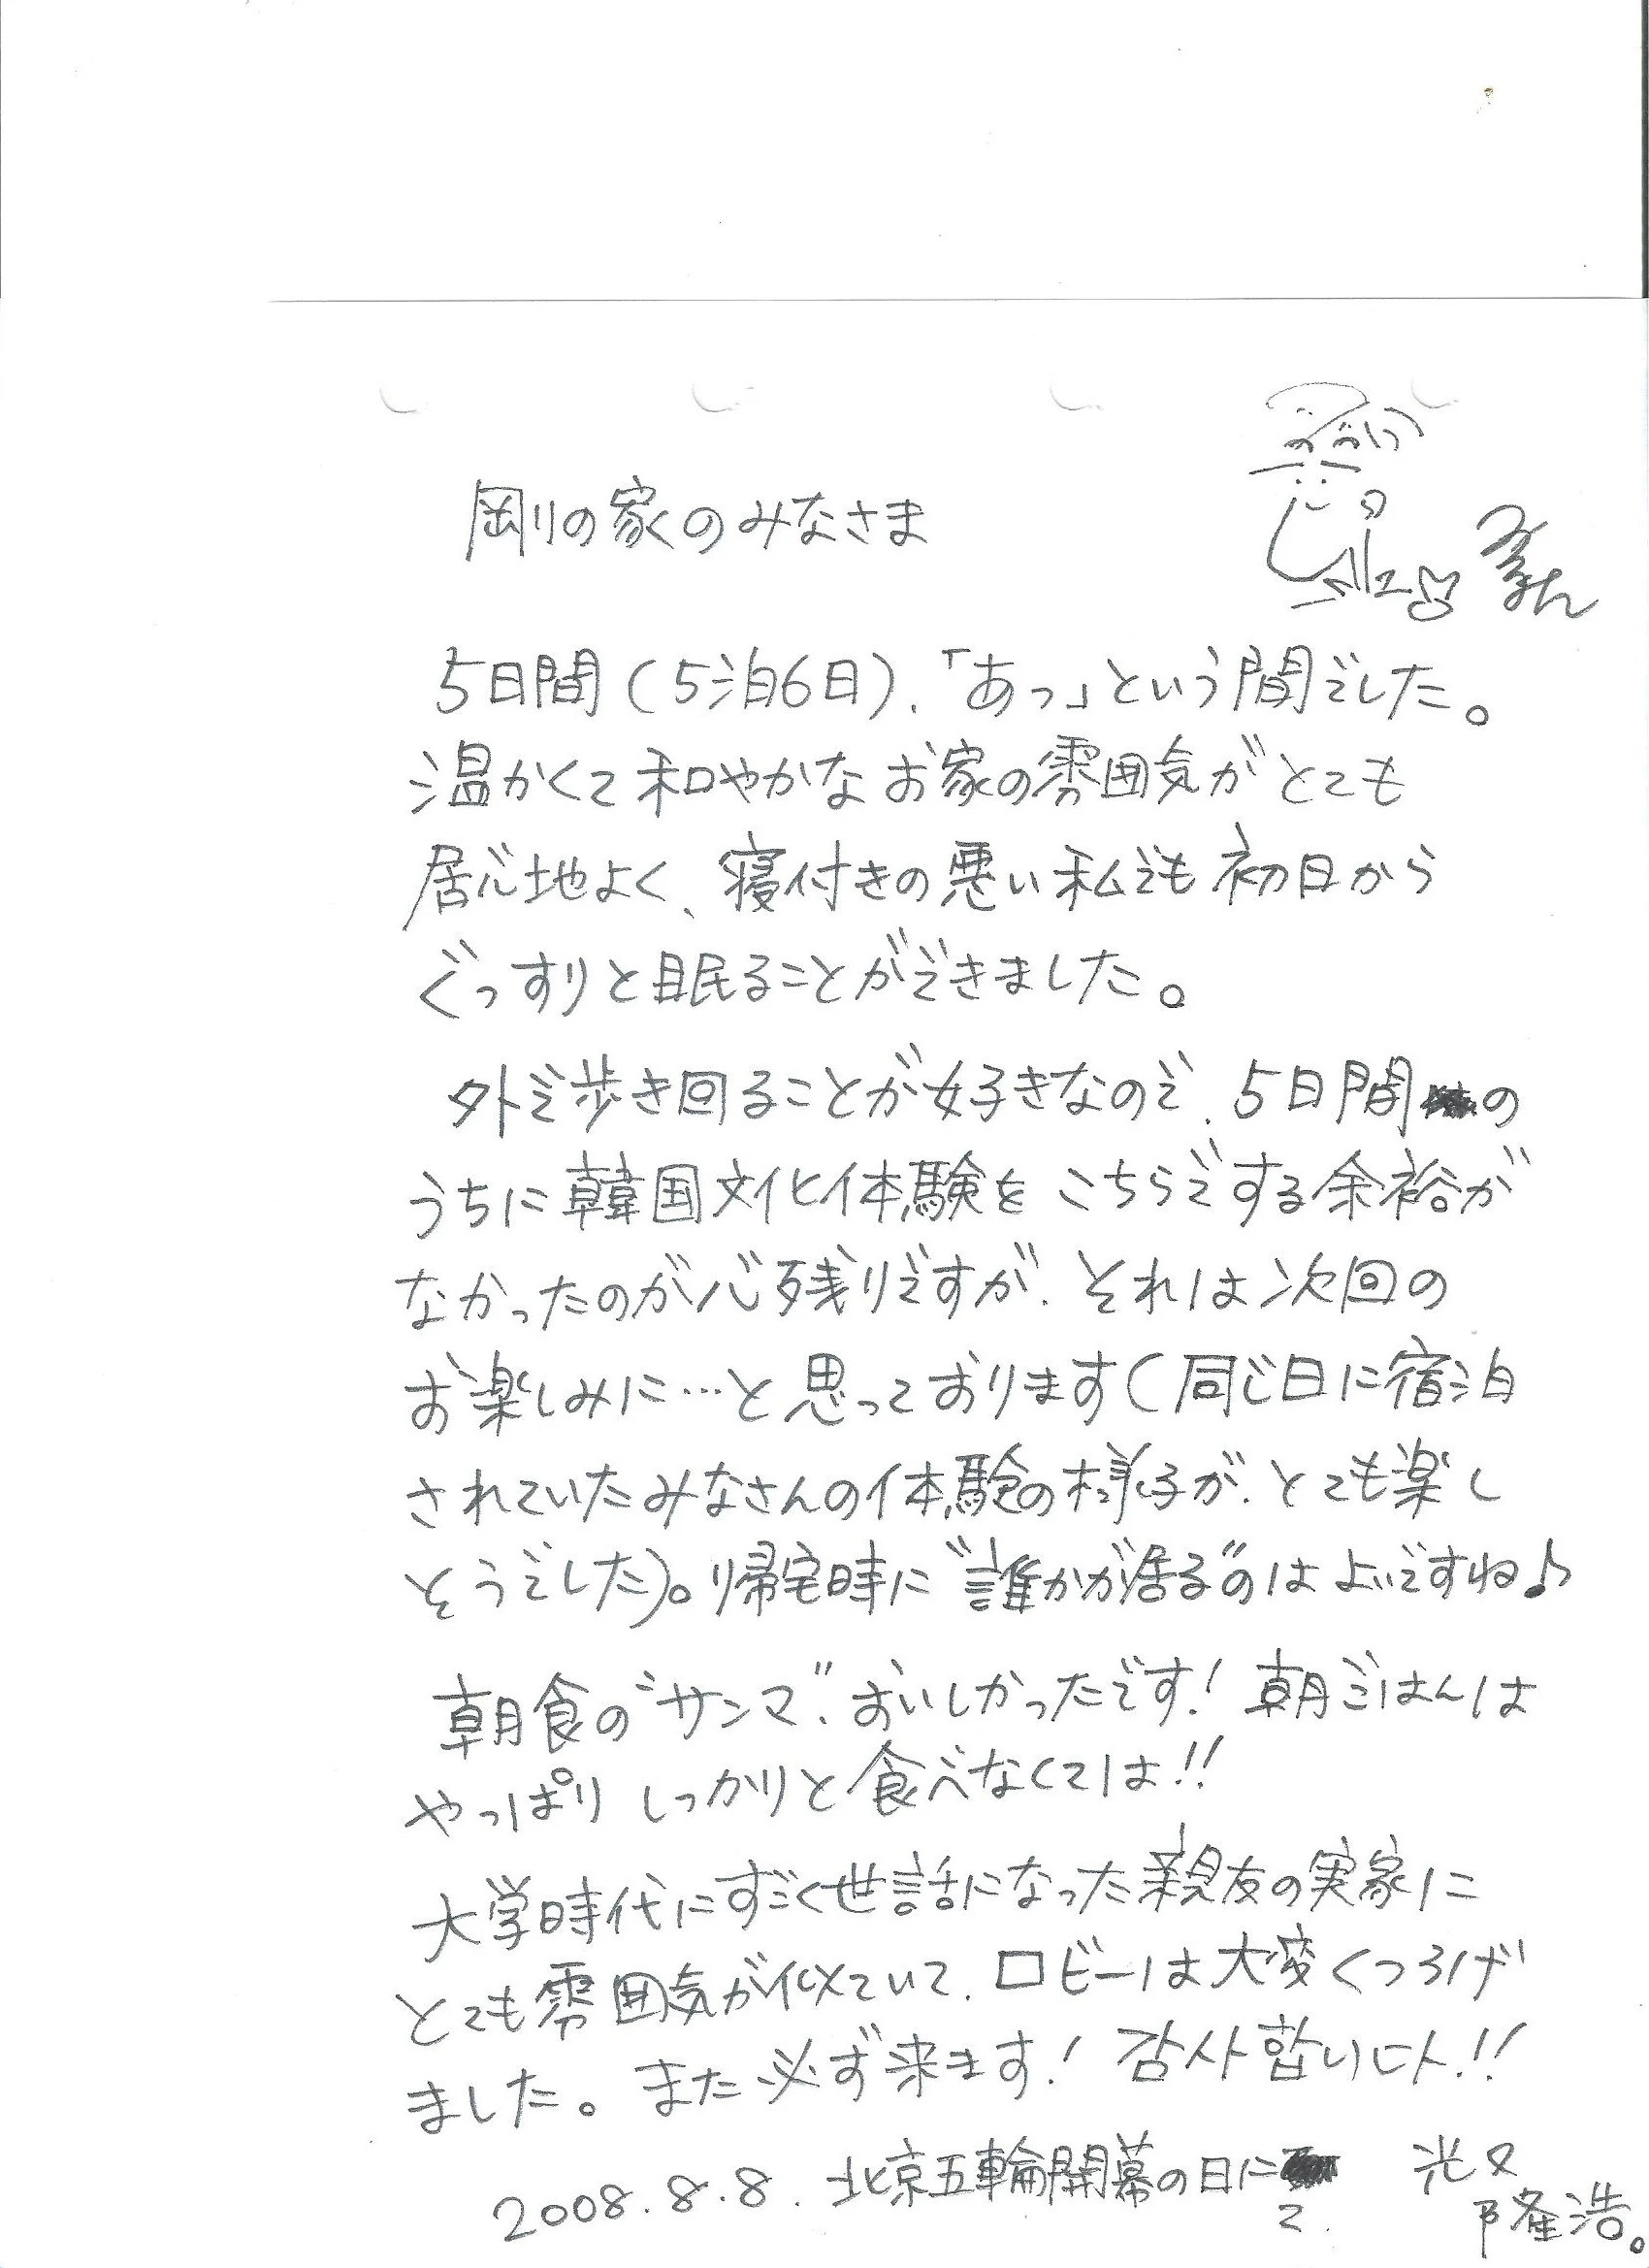 剛の家のみなさま
5日間(5泊6日)、「あっ」という間でした。
温かくて和やかなお家の雰囲気がとても
居心地よく、寝付きの悪い私でも初日から
ぐっすりと眠ることができました。
外で歩き回ることが好きなので、5日間の
うちに韓国文化体験をこちらでする余裕が
なかったのが心残りですが、それは次回の
お楽しみに…と思っております(同じ日に宿泊
されていたみなさんの体験の様子が、とても楽し
そうでした)。帰宅時に“誰かが居る”のはよいですね♪
朝食の“サンマ”、おいしかったです! 朝ごはんは
やっぱりしっかりと食べなくては!!
大学時代にすごく世話になった親友の実家に
とても雰囲気が似ていて、ロビーは大変くつろげ
ました。また必ず来ます! 감사합니다!!
2008.8.8. 北京五輪開幕の日にて. 光又
隆浩。